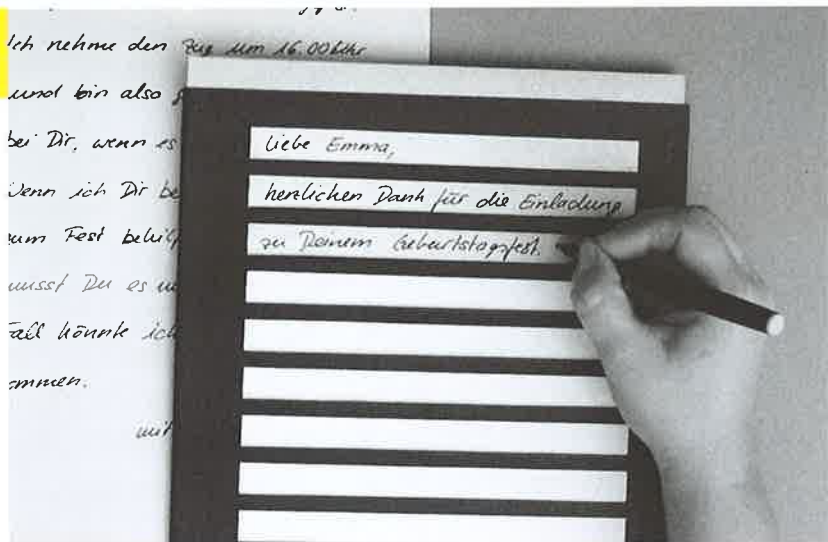 Ich nehme den Zug um 16.00 Uhr
und bin also
bei Dir, wenn es
Wenn ich Dir
zum Fest
musst Du es
Fall könnte ich
kommen.
mit
Liebe Emma,
herzlichen Dank für die Einladung
zu Deinem Geburtstagsfest.